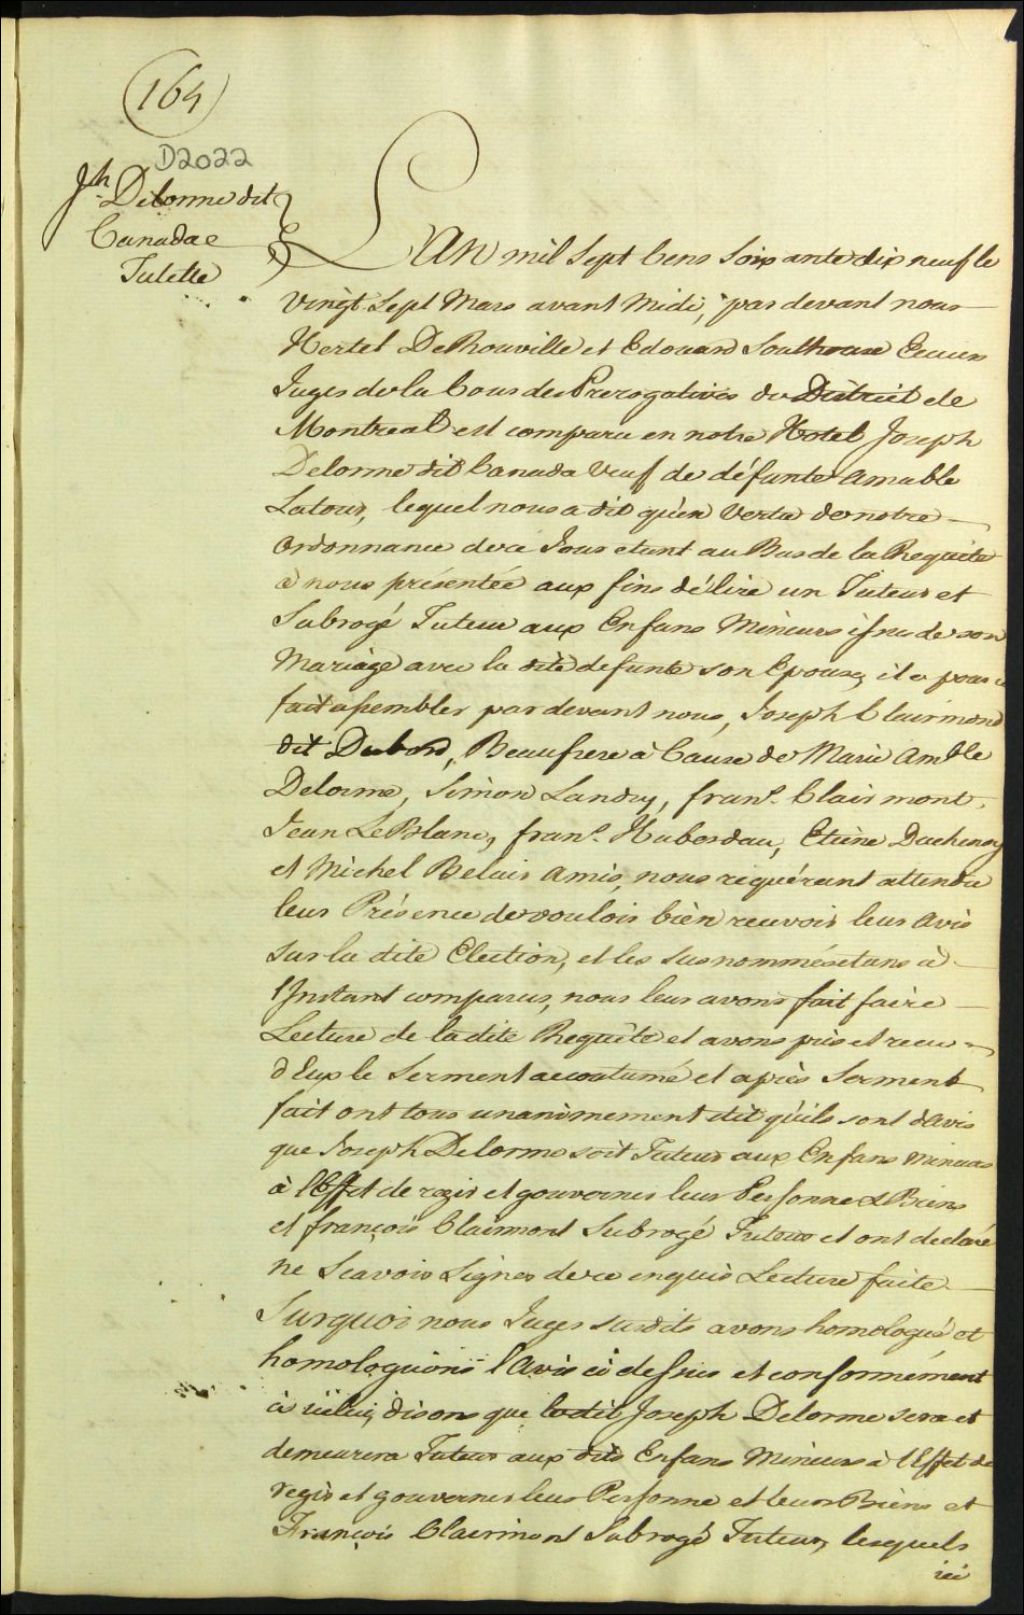 164
D2022
Jh. Delorme dit
Canada
Tutelle
L'an mil Sept Cens Soixante dix neuf le
vingt Sept Mars avant Midi, par devant nous
Hertel DeRouville et Edouard Southouse Ecuiers
Juges de la Cour des Prerogatives du District de
Montreal est comparu en notre Hotel Joseph
Delorme dit Canada Veuf de défunte Amable
Latour, lequel nous a dit qu'en Vertu de notre
Ordonnance de ce Jour etant au Bas de la Requête
à nous présentée aux fins d'élire un Tuteur et
Subrogé Tuteur aux Enfans Mineurs issus de son
Mariage avec la dite defunte son Epouse, il a pour ce
fait assembler par devant nous, Joseph Clairmond
dit Dubord, Beaufrere à Cause de Marie Amble
Delorme, Simon Landry, frans. Clairmont,
Jean LeBlanc, frans. Habordau, Etiène Duchenoy
et Michel Belair Amis, nous requérant attendu
leur Présence de vouloir bien recevoir leur Avis
sur la dite Election, et les Susnommés etans à
l'Instant comparus, nous leur avons fait faire
Lecture de la dite Requête et avons pris et recu
d'Eux le Serment accoutumé et après Serment
fait ont tous unanimement dit qu'ils sont d'Avis
que Joseph Delorme soit Tuteur aux Enfans mineurs
à l'Effet de regir et gouverner leur Personne & Biens
et françois Clairmont Subrogé Tuteur et ont declaré
ne Scavoir Signer de ce enquis Lecture faite
Surquoi nous Juges susdits avons homologué et
homologuons l'Avis ci dessus et conformément
à icelui, disons que ledit Joseph Delorme sera et
demeurera Tuteur aux dits Enfans Mineurs à l'Effet de
regir et gouverner leur Personne et leurs Biens et
François Clairmont Subrogé Tuteur, lesquels
ici